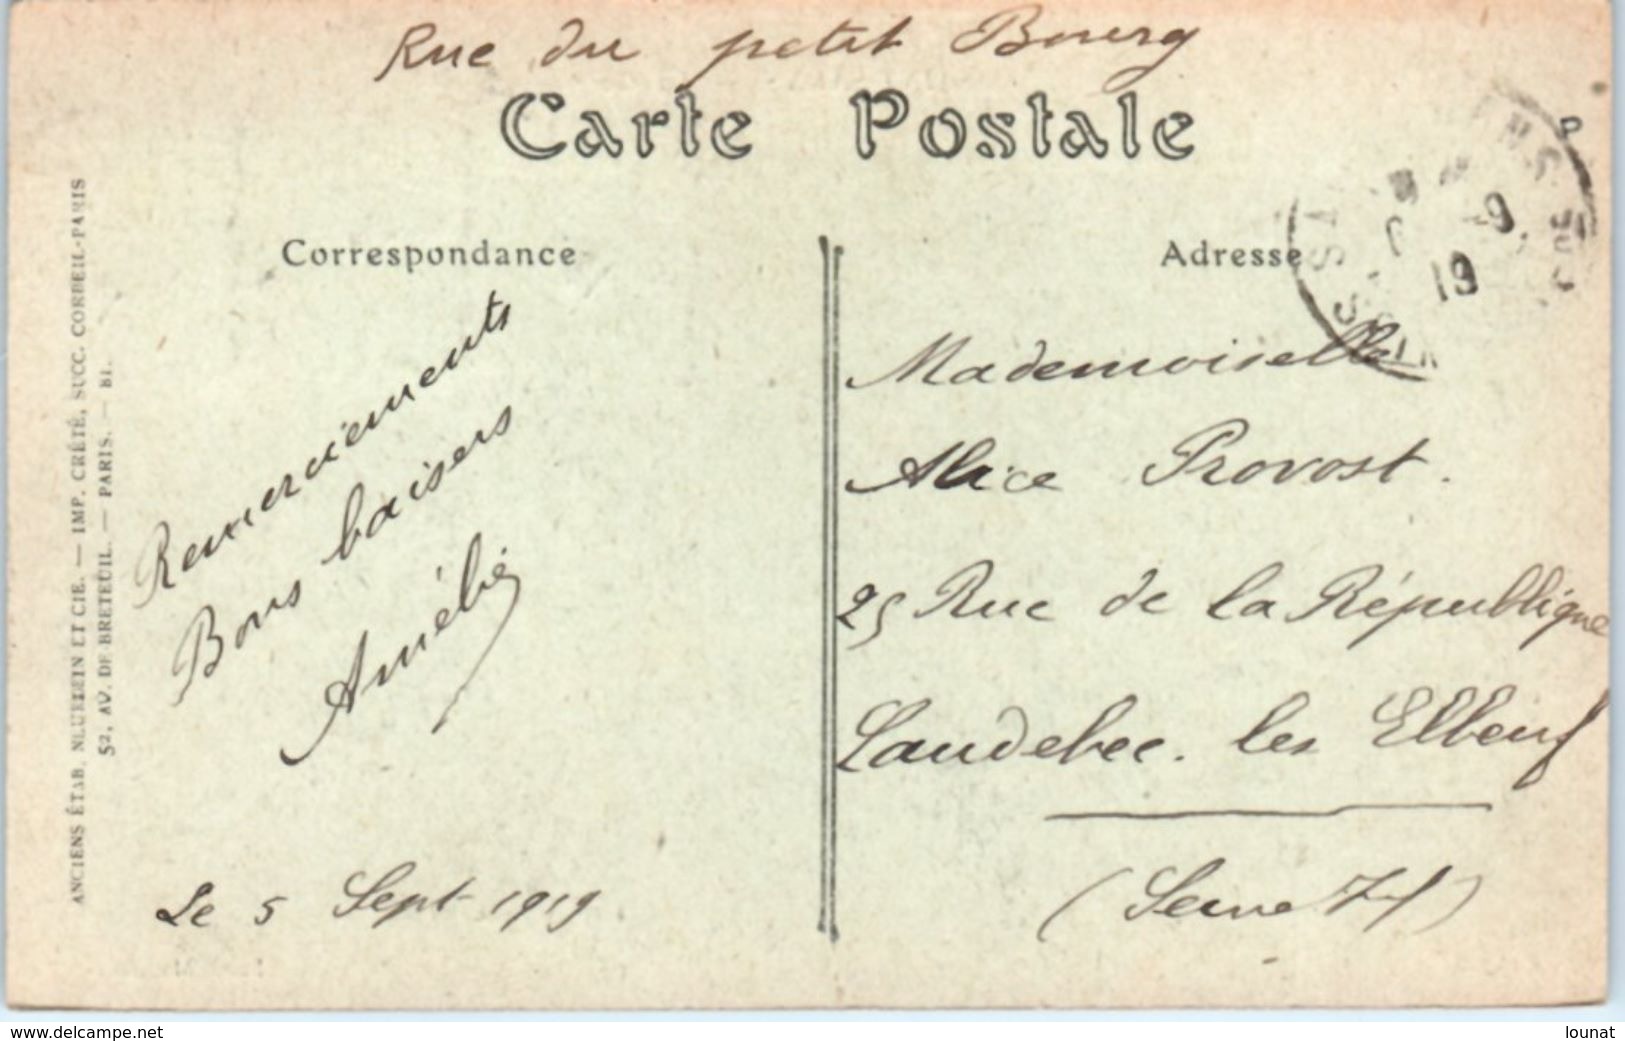 Rue du petit Bourg
Carte Postale
Correspondance
Adresse
ANCIENS ÉTAB. NEURDEIN ET CIE. — IMP. CRÉTÉ, SUCC. CORBEIL-PARIS
52, AV. DE BRETEUIL. — PARIS. —
Remerciements
Bons baisers
Amélie
Le 5 Sept 1919
Mademoiselle
Alice Provost.
25 Rue de la République
Caudebec. les Elbeuf
(Seine Inf)
19
www.delcampe.net
lounat